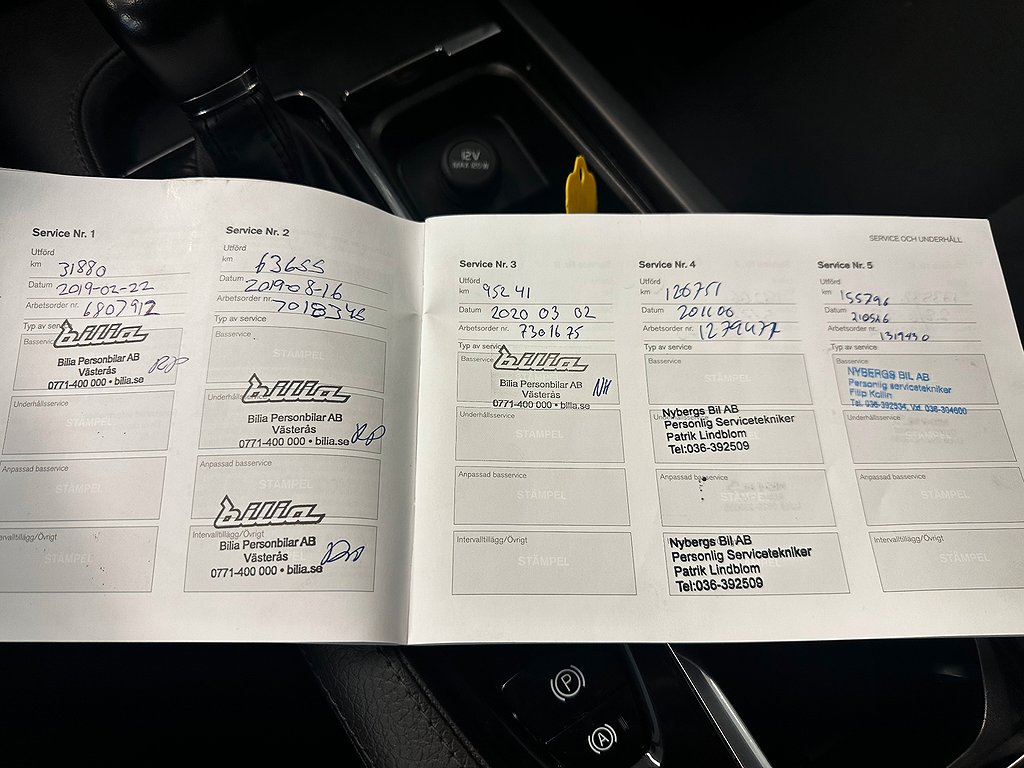 12V
SERVICE OCH UNDERHÅLL
Service Nr. 1
Utförd
km 31880
Datum 2019-02-22
Arbetsorder nr. 6807912
Typ av service
Basservice
bilia
Bilia Personbilar AB
Västerås
0771-400 000 • bilia.se
Underhållsservice
STÄMPEL
Anpassad basservice
STÄMPEL
Intervalltillägg/Övrigt
STÄMPEL
Service Nr. 2
Utförd
km 63655
Datum 2019-08-16
Arbetsorder nr. 7018345
Typ av service
Basservice
STÄMPEL
Underhållsservice
bilia
Bilia Personbilar AB
Västerås
0771-400 000 • bilia.se
Anpassad basservice
STÄMPEL
Intervalltillägg/Övrigt
bilia
Bilia Personbilar AB
Västerås
0771-400 000 • bilia.se
Service Nr. 3
Utförd
km 95241
Datum 2020 03 02
Arbetsorder nr. 7301675
Typ av service
Basservice
bilia
Bilia Personbilar AB
Västerås
0771-400 000 • bilia.se
NH
Underhållsservice
STÄMPEL
Anpassad basservice
STÄMPEL
Intervalltillägg/Övrigt
STÄMPEL
Service Nr. 4
Utförd
km 126751
Datum
Arbetsorder nr.
Typ av service
Basservice
STÄMPEL
Underhållsservice
Nybergs Bil AB
Personlig Servicetekniker
Patrik Lindblom
Tel:036-392509
Anpassad basservice
STÄMPEL
Intervalltillägg/Övrigt
Nybergs Bil AB
Personlig Servicetekniker
Patrik Lindblom
Tel:036-392509
Service Nr. 5
Utförd
km 155796
Datum 210526
Arbetsorder nr. 1319430
Typ av service
Basservice
NYBERGS BIL AB
Personlig servicetekniker
Filip Kollin
Tel. 036-392534, Vxl 036-304600
Underhållsservice
STÄMPEL
Anpassad basservice
STÄMPEL
Intervalltillägg/Övrigt
STÄMPEL
P
A